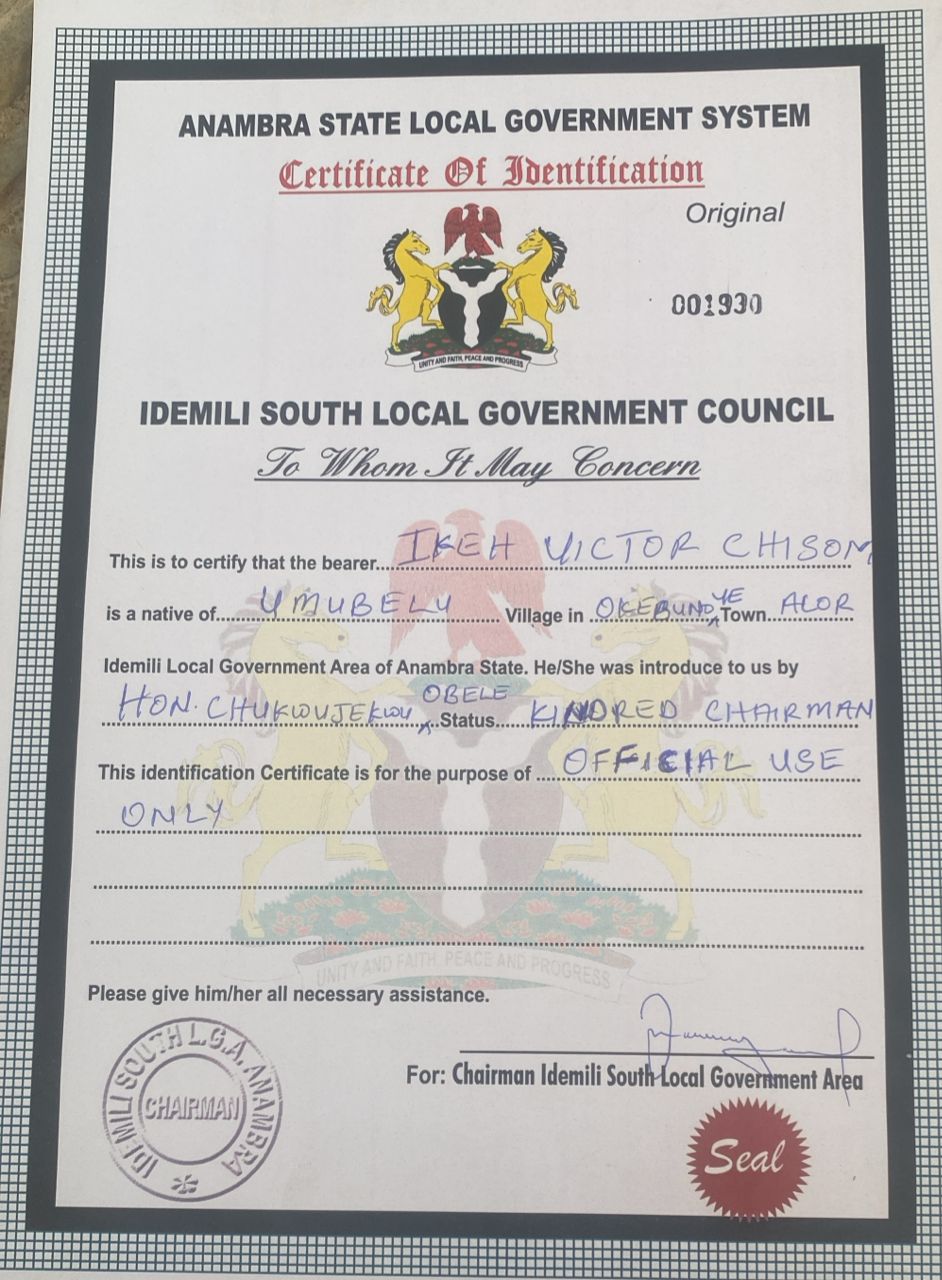 ANAMBRA STATE LOCAL GOVERNMENT SYSTEM
Certificate Of Identification
Original
UNITY AND FAITH, PEACE AND PROGRESS
001930
IDEMILI SOUTH LOCAL GOVERNMENT COUNCIL
To Whom It May Concern
This is to certify that the bearer....IKEH VICTOR CHISOM
is a native of.....UMUBELU..... Village in ...OKEBUNOYE Town...ALOR
Idemili Local Government Area of Anambra State. He/She was introduce to us by
HON. CHUKWUJEKWU OBELE Status....KINDRED CHAIRMAN
This identification Certificate is for the purpose of ....OFFICIAL USE
ONLY
UNITY AND FAITH, PEACE AND PROGRESS
Please give him/her all necessary assistance.
For: Chairman Idemili South Local Government Area
IDEMILI SOUTH L.G.A. ANAMBRA
CHAIRMAN
Seal